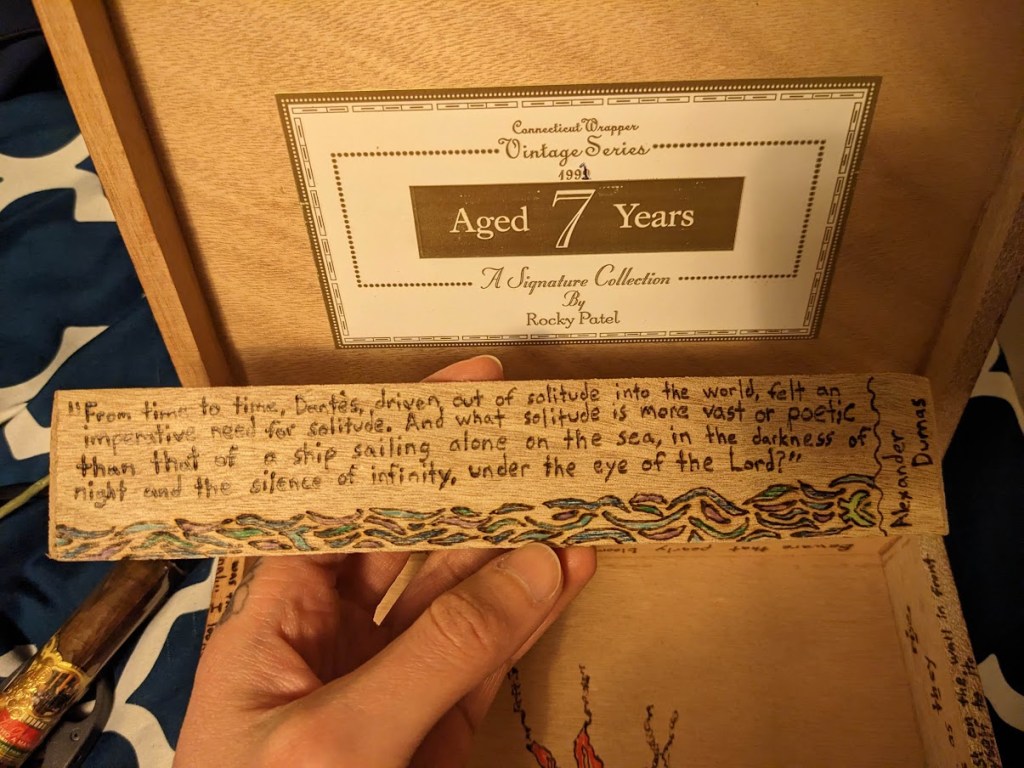 Connecticut Wrapper
Vintage Series
1992
Aged 7 Years
A Signature Collection
By
Rocky Patel
"From time to time, Dantès, driven out of solitude into the world, felt an
imperative need for solitude. And what solitude is more vast or poetic
than that of a ship sailing alone on the sea, in the darkness of
night and the silence of infinity, under the eye of the Lord?"
Alexander
Dumas
Beware that pearly bloom
was
as they
on the wall in front